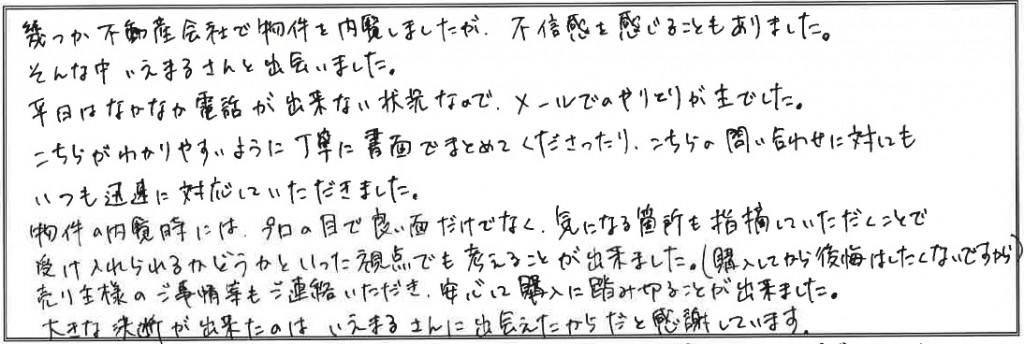 幾つか不動産会社で物件を内覧しましたが、不信感を感じることもありました。
そんな中いえまるさんと出会いました。
平日はなかなか電話が出来ない状況なので、メールでのやりとりが主でした。
こちらがわかりやすいように丁寧に書面でまとめてくださったり、こちらの問い合わせに対しても
いつも迅速に対応していただきました。
物件の内覧時には、プロの目で良い面だけでなく、気になる箇所も指摘していただくことで
受け入れられるかどうかといった視点でも考えることが出来ました。(購入してから後悔はしたくないですから)
売り主様のご事情等もご連絡いただき、安心して購入に踏み切ることが出来ました。
大きな決断が出来たのは いえまるさんに出会えたからだと感謝しています。